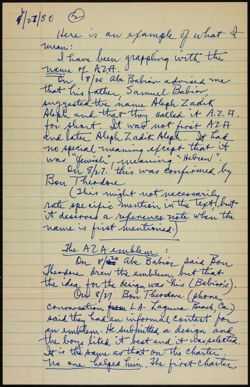 8/28/80 2
Here is an example of what I
mean:
I have been grappling with the
name of AZA.
On 8/20 Abe Babior advised me
that his father, Samuel Babior
suggested the name Aleph Zadik
Aleph and that they called it A.Z.A.
for short. It was not first AZA
and later Aleph Zadik Aleph. It had
no special meaning except that it
was "Jewish" meaning "Hebrew".
On 8/27. this was confirmed by
Ben Theodore
(This might not necessarily
rate specific mention in the text, but
it deserves a reference note when the
name is first mentioned.)
The AZA emblem:
On 8/20 Abe Babior said Ben
Theodore drew the emblem, but that
the idea for the design was his (Babior's).
On 8/27 Ben Theodore (phone
conversation L.A. - Laguna Beach Ca.)
said they had an informal contest for
an emblem. He submitted a design and
the boys liked it best and it was selected.
It is the same as that on the charter.
No one helped him. The first charter